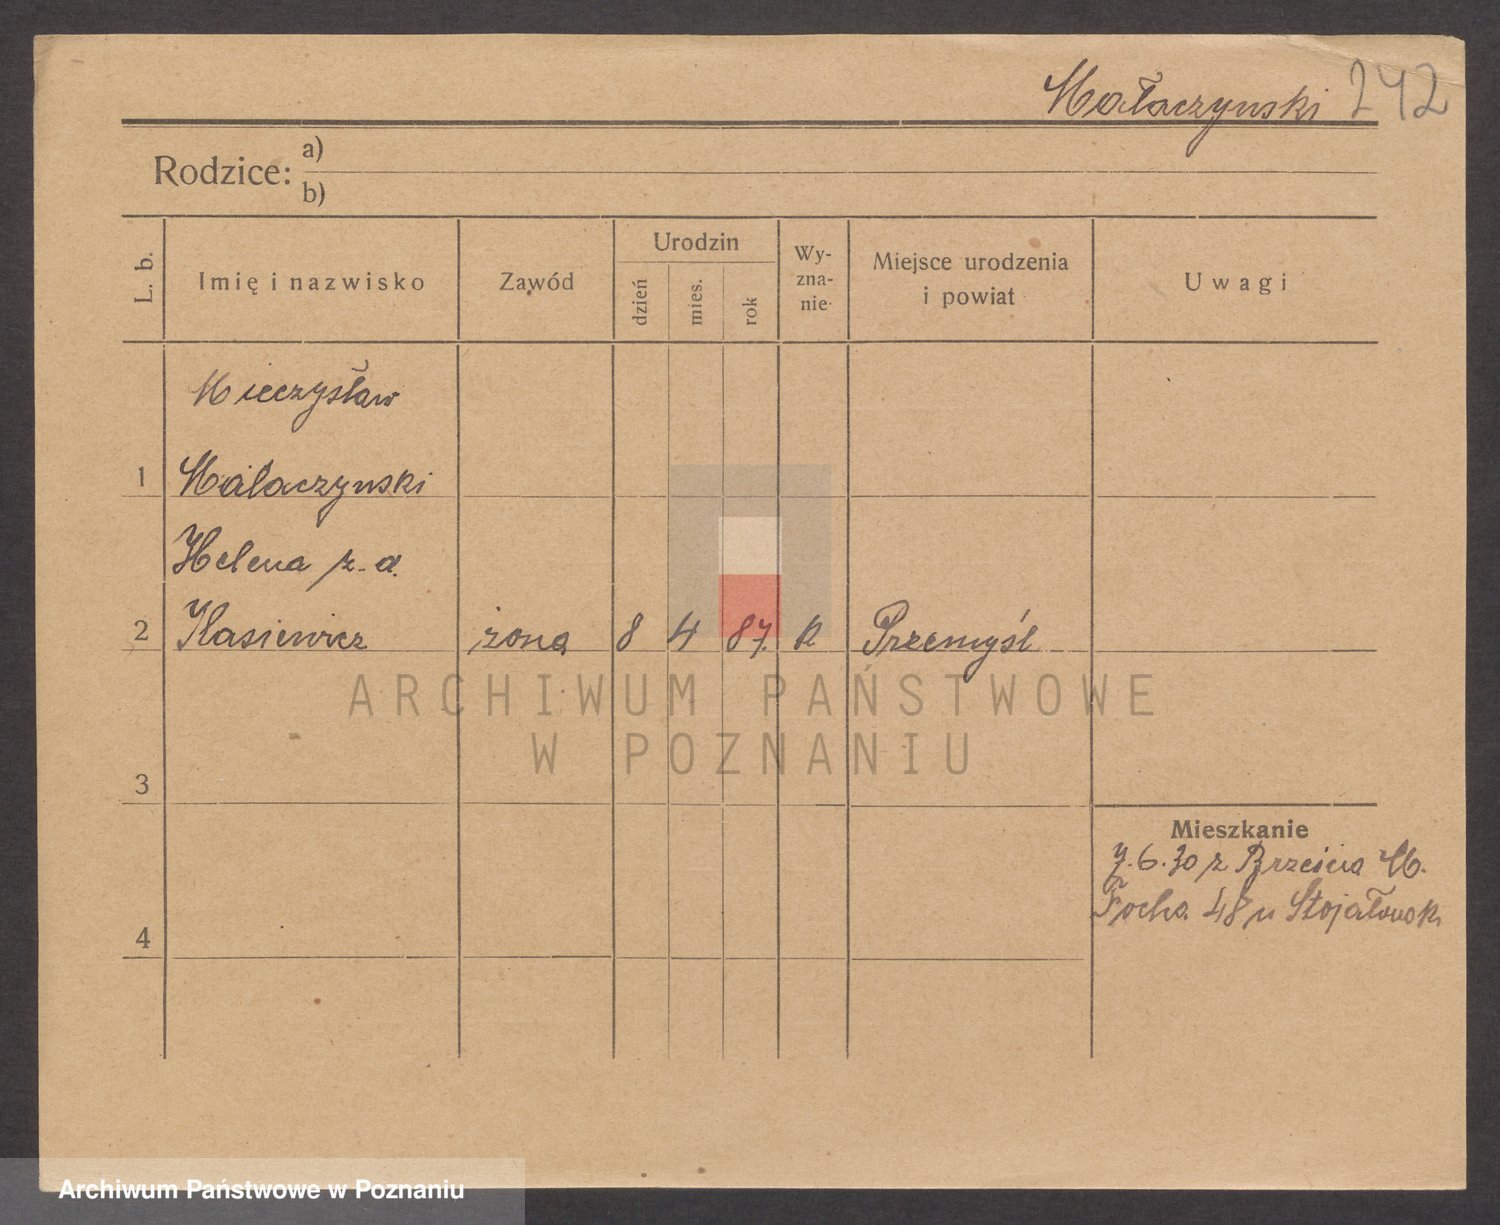 Małaczynski 242
Rodzice: a)
b)
L. b.
Imię i nazwisko
Zawód
Urodzin
dzień
mies.
rok
Wy-
zna-
nie
Miejsce urodzenia
i powiat
Uwagi
Mieczysław
1 Małaczynski
Helena z d.
2 Ilasiewicz żona 8 4 87. R Przemyśl
ARCHIWUM PAŃSTWOWE
W POZNANIU
3
Mieszkanie
7.6.30 z Brześcia M.
Focha 48 u
4
Archiwum Państwowe w Poznaniu